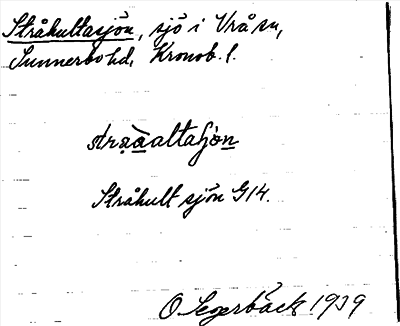 Stråkultasjön, sjö i Vrå sn,
Sunnerbo hd, Kronob. l.
Stråkult sjön G14.
O Segerbäck 1939